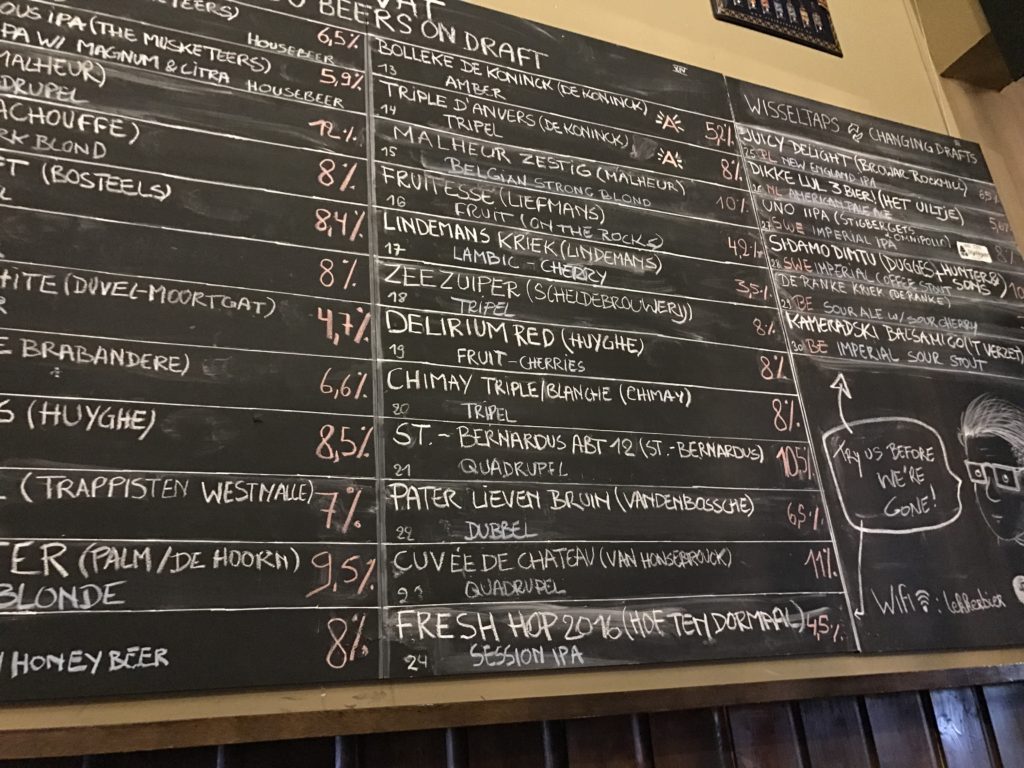 BEERS ON DRAFT
6,5%
OUS IPA (THE MUSKETEERS)
HOUSEBEER
PA W/ MAGNUM & CITRA
5,9%
HOUSEBEER
MALHEUR)
DRUPEL
12%
ACHOUFFE)
RK BLOND
8%
FT (BOSTEELS)
8,4%
8%
HITE (DUVEL-MOORTGAT)
4,7%
E BRABANDERE)
6,6%
S (HUYGHE)
8,5%
L (TRAPPISTEN WESTMALLE)
7%
TER (PALM/DE HOORN)
BLONDE
9,5%
HONEY BEER
8%
BOLLEKE DE KONINCK (DE KONINCK)
13 AMBER
5,2%
TRIPLE D'ANVERS (DE KONINCK)
14 TRIPEL
8%
MALHEUR ZESTIG (MALHEUR)
15 BELGIAN STRONG BLOND
10%
FRUITESSE (LIEFMANS)
16 FRUIT (ON THE ROCKS)
4,2%
LINDEMANS KRIEK (LINDEMANS)
17 LAMBIC - CHERRY
3,5%
ZEEZUIPER (SCHELDEBROUWERIJ)
18 TRIPEL
8%
DELIRIUM RED (HUYGHE)
19 FRUIT-CHERRIES
8%
CHIMAY TRIPLE/BLANCHE (CHIMAY)
20 TRIPEL
8%
ST.-BERNARDUS ABT 12 (ST.-BERNARDUS)
21 QUADRUPEL
10,5%
PATER LIEVEN BRUIN (VANDENBOSSCHE)
22 DUBBEL
6,5%
CUVÉE DE CHATEAU (VAN HONSEBROUCK)
23 QUADRUPEL
11%
FRESH HOP 2016 (HOF TEN DORMAAL)
24 SESSION IPA
4,5%
WISSELTAPS & CHANGING DRAFTS
JUICY DELIGHT (BROWAR ROCKMILL)
25 PL NEW ENGLAND IPA
DIKKE LUL 3 BIER (HET UILTJE)
26 NL AMERICAN PALE ALE
UNO IIPA (STIGBERGETS OMNIPOLLO)
SWE IMPERIAL IPA
SIDAMO DIMTU (DUGGES, HUNTER & SONS)
28 SWE IMPERIAL COFFEE STOUT
DE RANKE KRIEK (DE RANKE)
29 BE SOUR ALE W/ SOUR CHERRY
KAMERADSKI BALSAMICO ('T VERZET)
30 BE IMPERIAL SOUR STOUT
TRY US BEFORE
WE'RE
GONE!
WiFi : lekkerbier